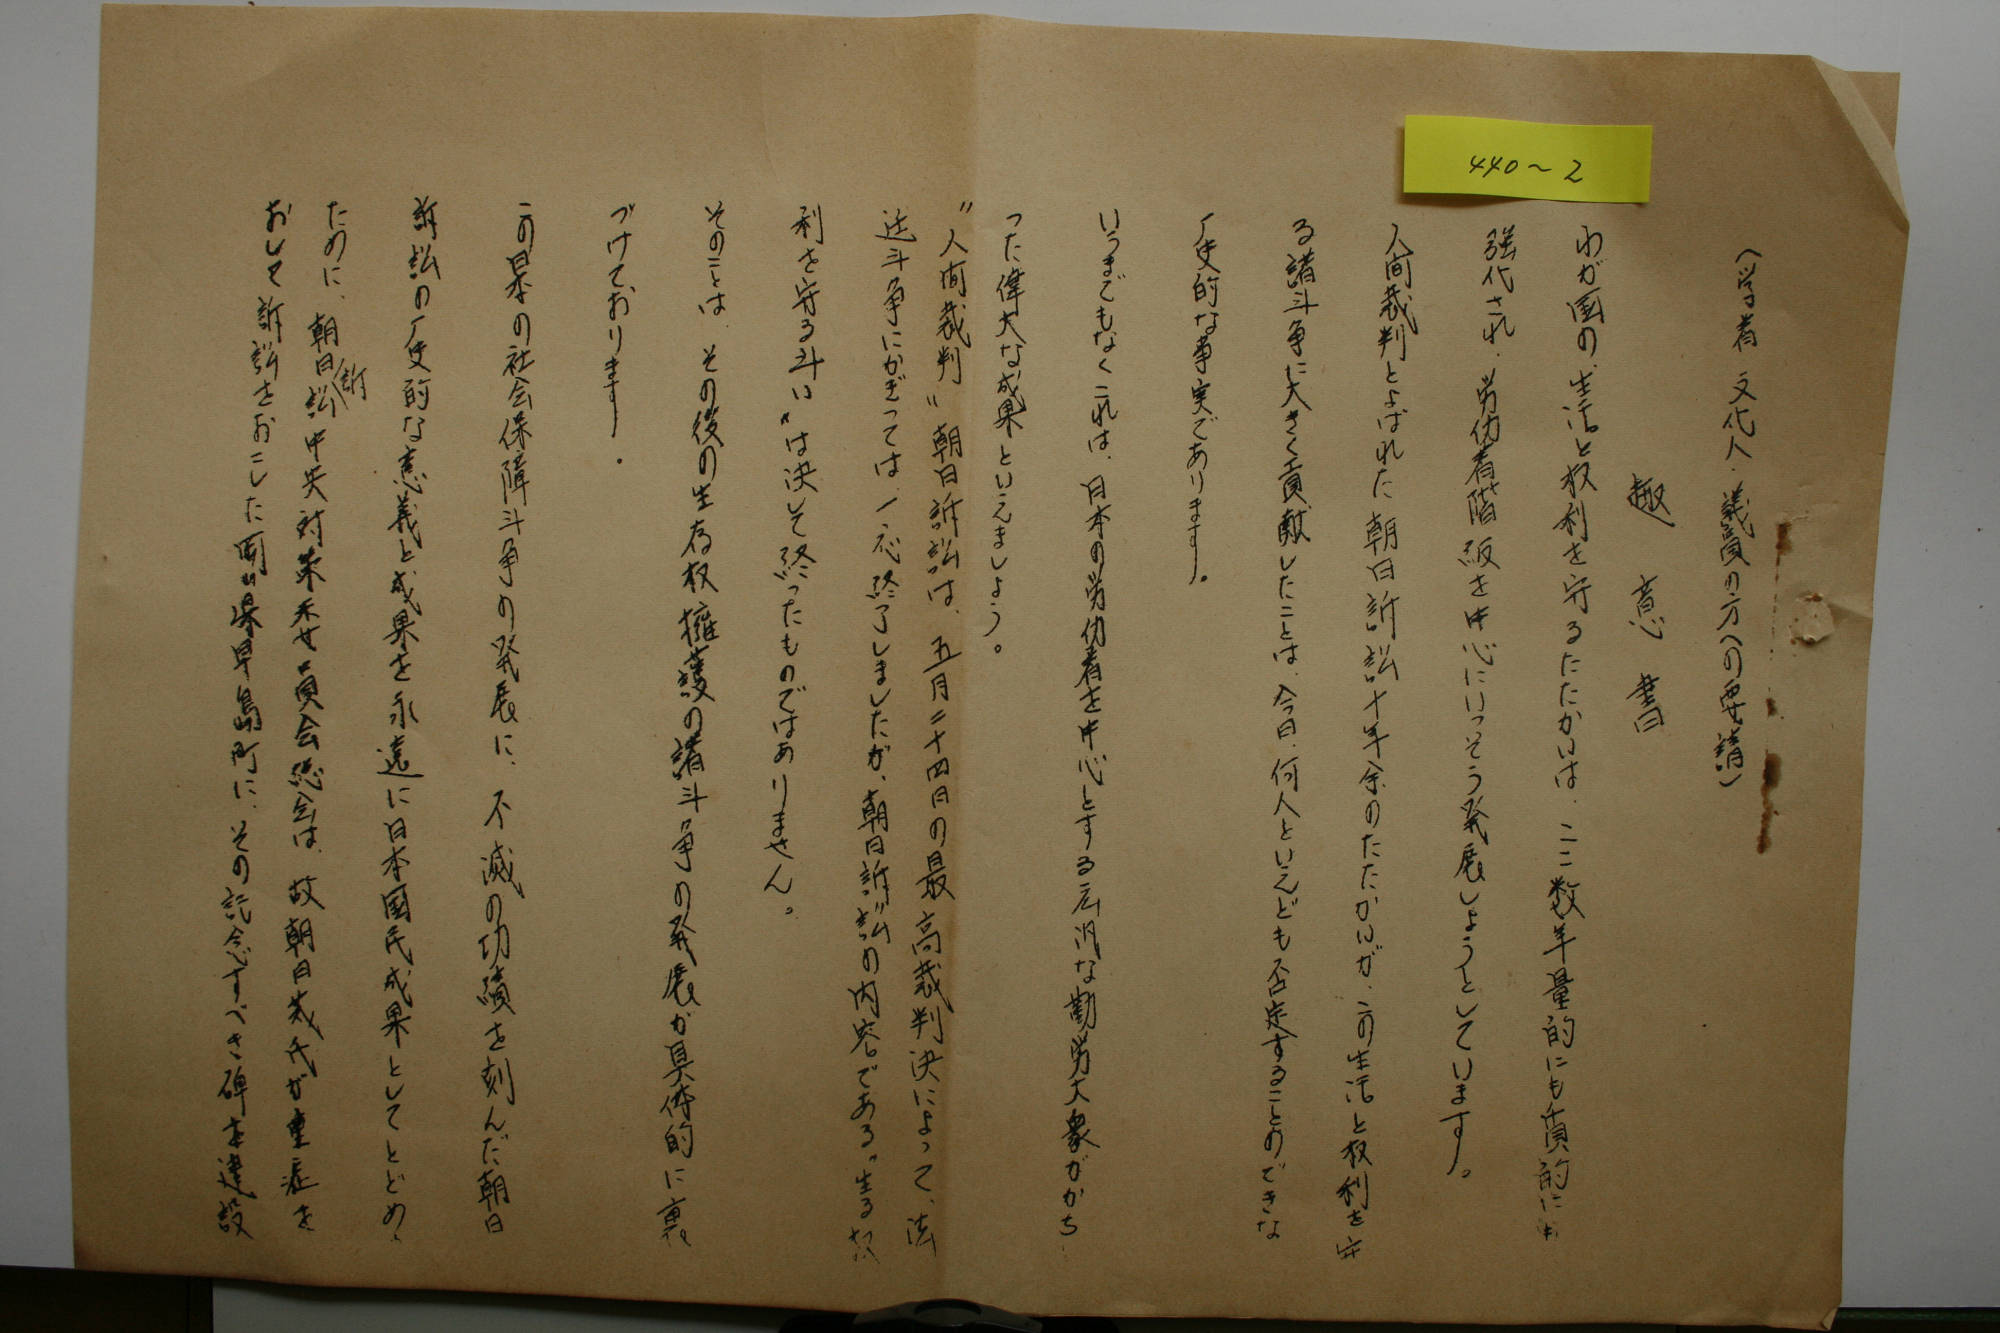 440~2
(学者 文化人・議員の方への要請)
趣意書
わが国の、生活と权利を守るたたかいは、ここ数年量的にも質的にも
強化され、労仂者階級を中心にいっそう発展しようとしています。
人间裁判とよばれた朝日訴訟十年余のたたかいが、この生活と权利を守
る諸斗争に大きく貢献したことは、今日、何人といえども否定することのできな
い厂史的な事実であります。
いうまでもなくこれは、日本の労仂者を中心とする広汎な勤労大衆がかち
った偉大な成果といえましょう。
〃人间裁判〃朝日訴訟は、五月二十四日の最高裁判決によって、法
廷斗争にかぎっては、一応終了しましたが、朝日訴訟の内容である〃生る权
利を守る斗い〃は決して終ったものではありません。
そのことは、その後の生存权擁護の諸斗争の発展が具体的に裏
づけております。
この界の社会保障斗争の発展に、不滅の功績を刻んだ朝日
訴訟の厂史的な意義と成果を永遠に日本国民成果としてとどめ、
ために、朝日訴訟中央対策委員会総会は、故朝日茂氏が重症を
おして訴訟をおこした岡山県早島町に、その記念すべき碑を建設